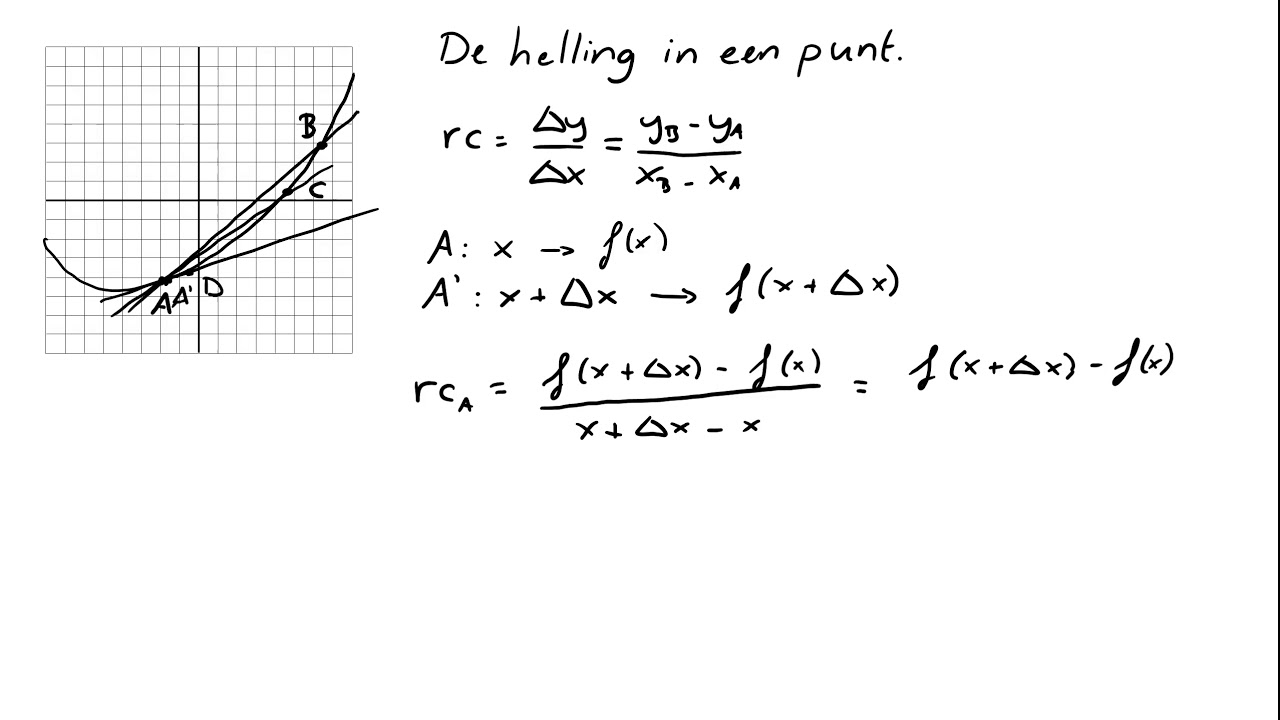 De helling in een punt.
rc = Δy / Δx = yB - yA / xB - xA
A: x → f(x)
A' : x + Δx → f(x + Δx)
rcA = f(x + Δx) - f(x) / x + Δx - x = f(x + Δx) - f(x)
B
C
A A' D